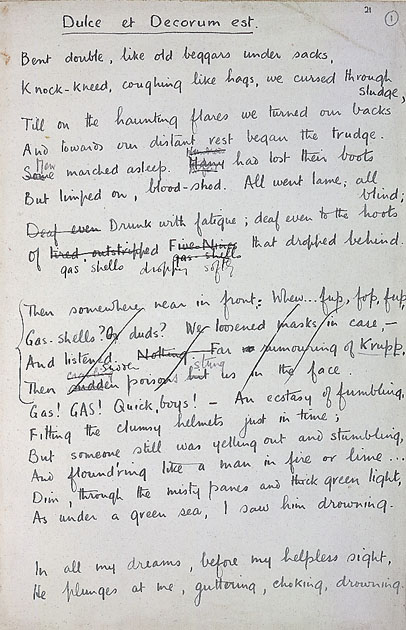 21
1
Dulce et Decorum est.
Bent double, like old beggars under sacks,
Knock-kneed, coughing like hags, we cursed through
sludge,
Till on the haunting flares we turned our backs
And towards our distant rest began the trudge.
Some Men marched asleep. Many had lost their boots
But limped on, blood-shod. All went lame; all
blind;
Deaf even Drunk with fatigue; deaf even to the hoots
Of tired, outstripped Five-Nines that dropped behind.
gas shells dropping softly
gas-shells
Then somewhere near in front: Whew... fup, fop, fup,
Gas-shells? Or duds? We loosened masks in case, —
And listened. Nothing. Far rumouring of Krupp,
Then sudden poisons hit us in the face.
stung
Gas! GAS! Quick, boys! — An ecstasy of fumbling,
Fitting the clumsy helmets just in time;
But someone still was yelling out and stumbling,
And flound'ring like a man in fire or lime ...
Dim, through the misty panes and thick green light,
As under a green sea, I saw him drowning.
In all my dreams, before my helpless sight,
He plunges at me, guttering, choking, drowning.